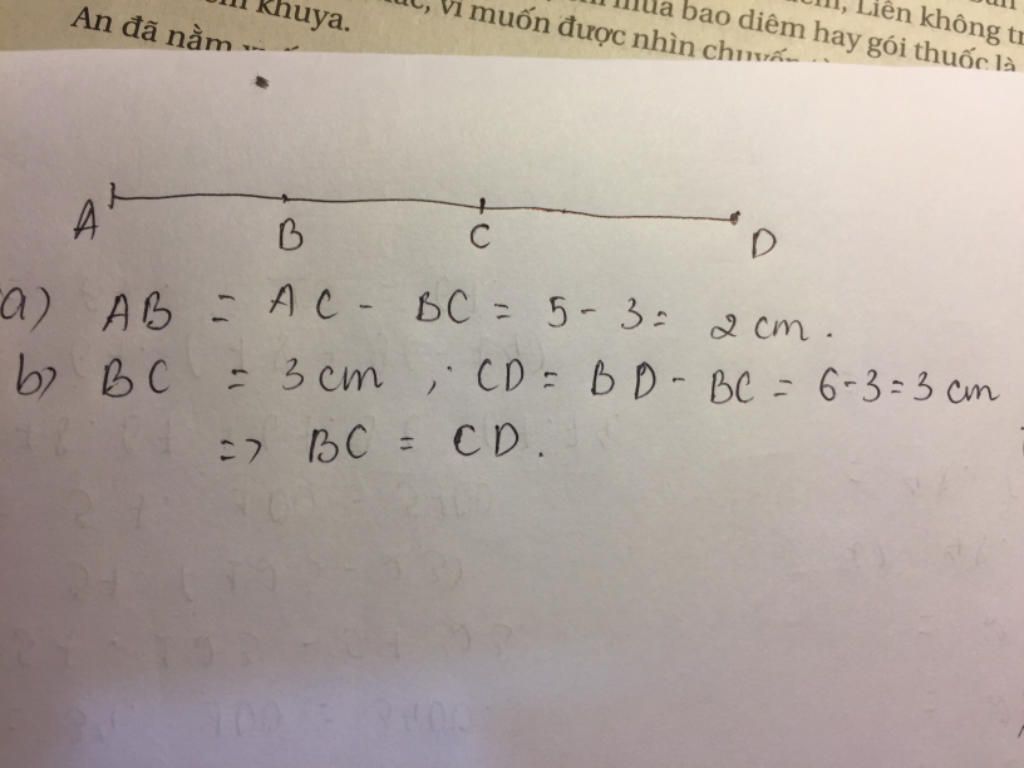 mua bao diêm hay gói thuốc là
vì muốn được nhìn chuyến
Liên không
khuya.
An đã nằm
A B C D
a) AB = AC - BC = 5 - 3 = 2 cm.
b) BC = 3 cm ; CD = BD - BC = 6 - 3 = 3 cm
=> BC = CD.